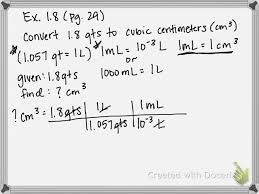 Ex. 1.8 (pg. 29)
Convert 1.8 qts to cubic centimeters (cm³)
(1.057 qt = 1L) * 1mL = 10⁻³ L 1mL = 1 cm³
or
given: 1.8qts 1000mL = 1L
find: ? cm³
? cm³ = 1.8qts | 1L | 1mL
1.057qts | 10⁻³ L
Created with Doceri